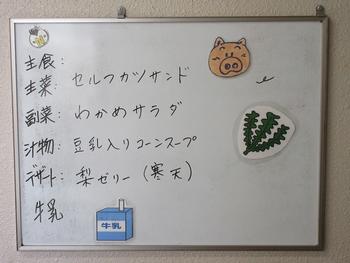 主食:
主菜: セルフカツサンド
副菜: わかめサラダ
汁物: 豆乳入りコーンスープ
デザート: 梨ゼリー(寒天)
牛乳
牛乳